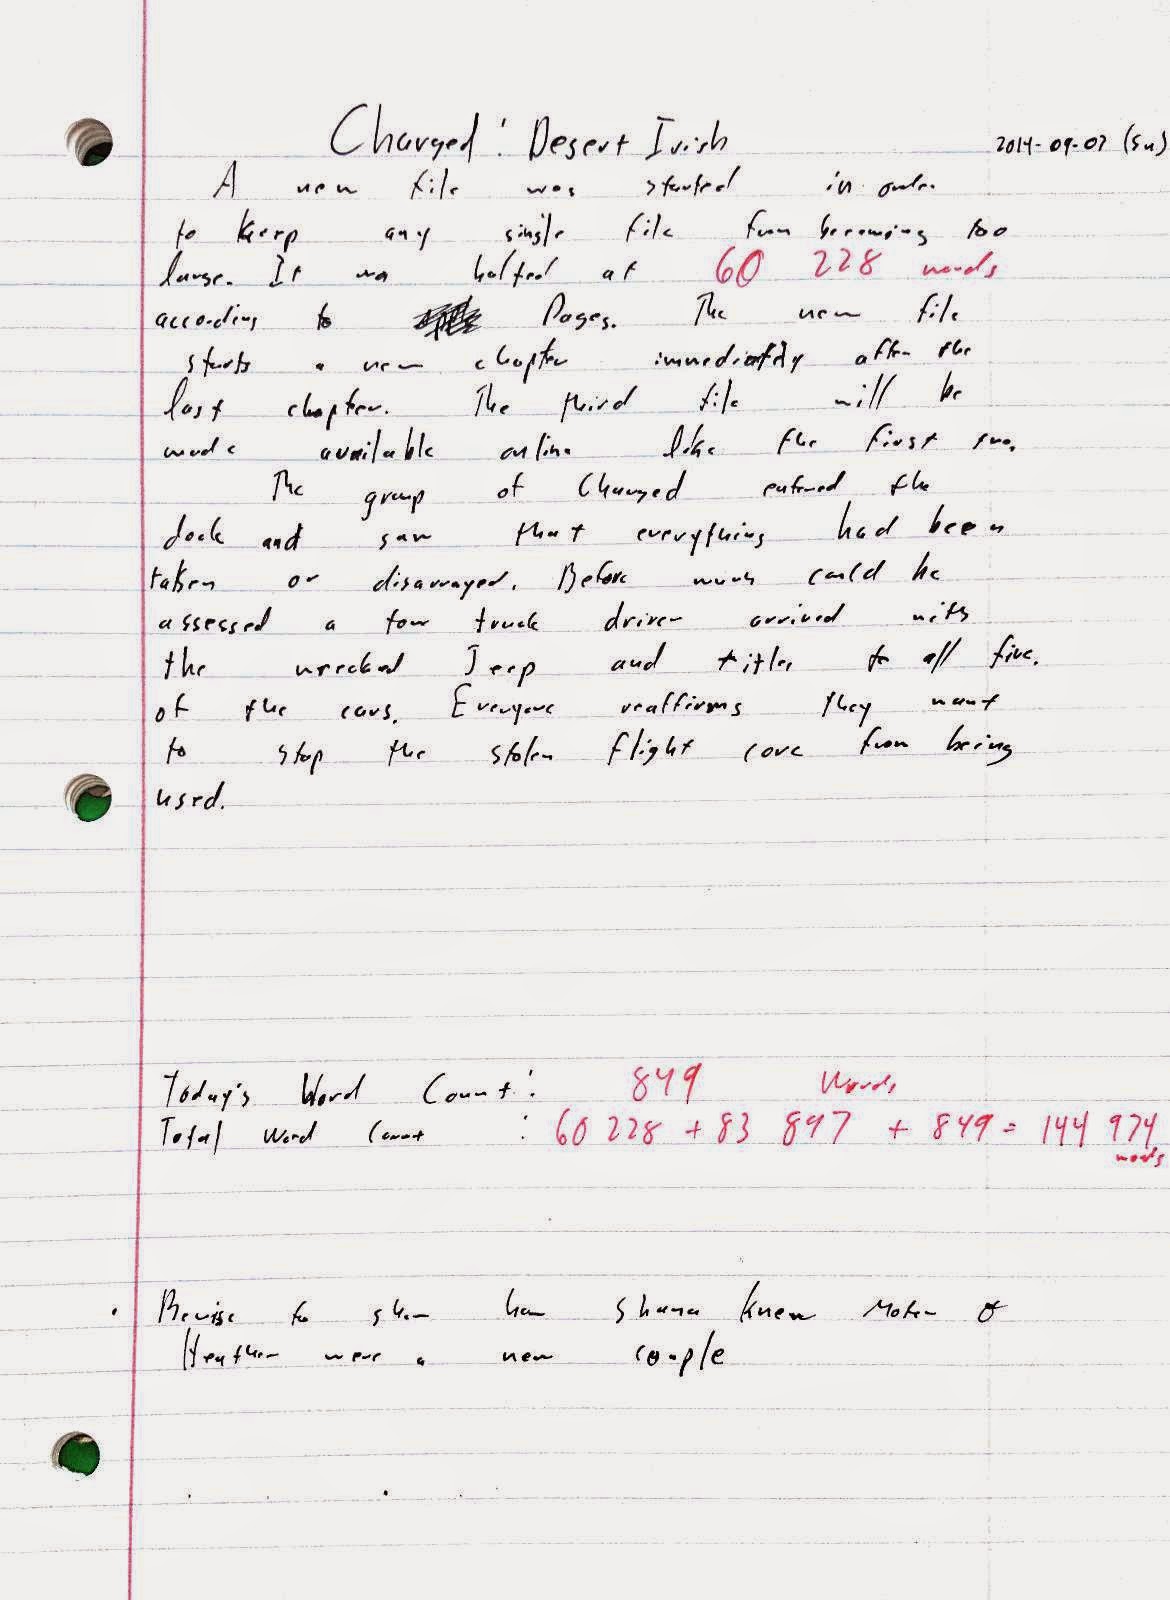 Charged: Desert Irish
2014-09-07 (Su)
A new file was started in order
to keep any single file from becoming too
large. It was halted at 60 228 words
according to Pages. The new file
starts a new chapter immediately after the
last chapter. The third file will be
made available online like the first two.
The group of Charged entered the
dock and saw that everything had been
taken or disarrayed. Before much could be
assessed a tow truck driver arrived with
the wrecked Jeep and titles to all five
of the cars. Everyone reaffirms they want
to stop the stolen flight core from being
used.
Today's Word Count: 849 Words
Total Word Count : 60 228 + 83 897 + 849 = 144 974
words
• Revise to show how Shana knew &
Heather were a new couple